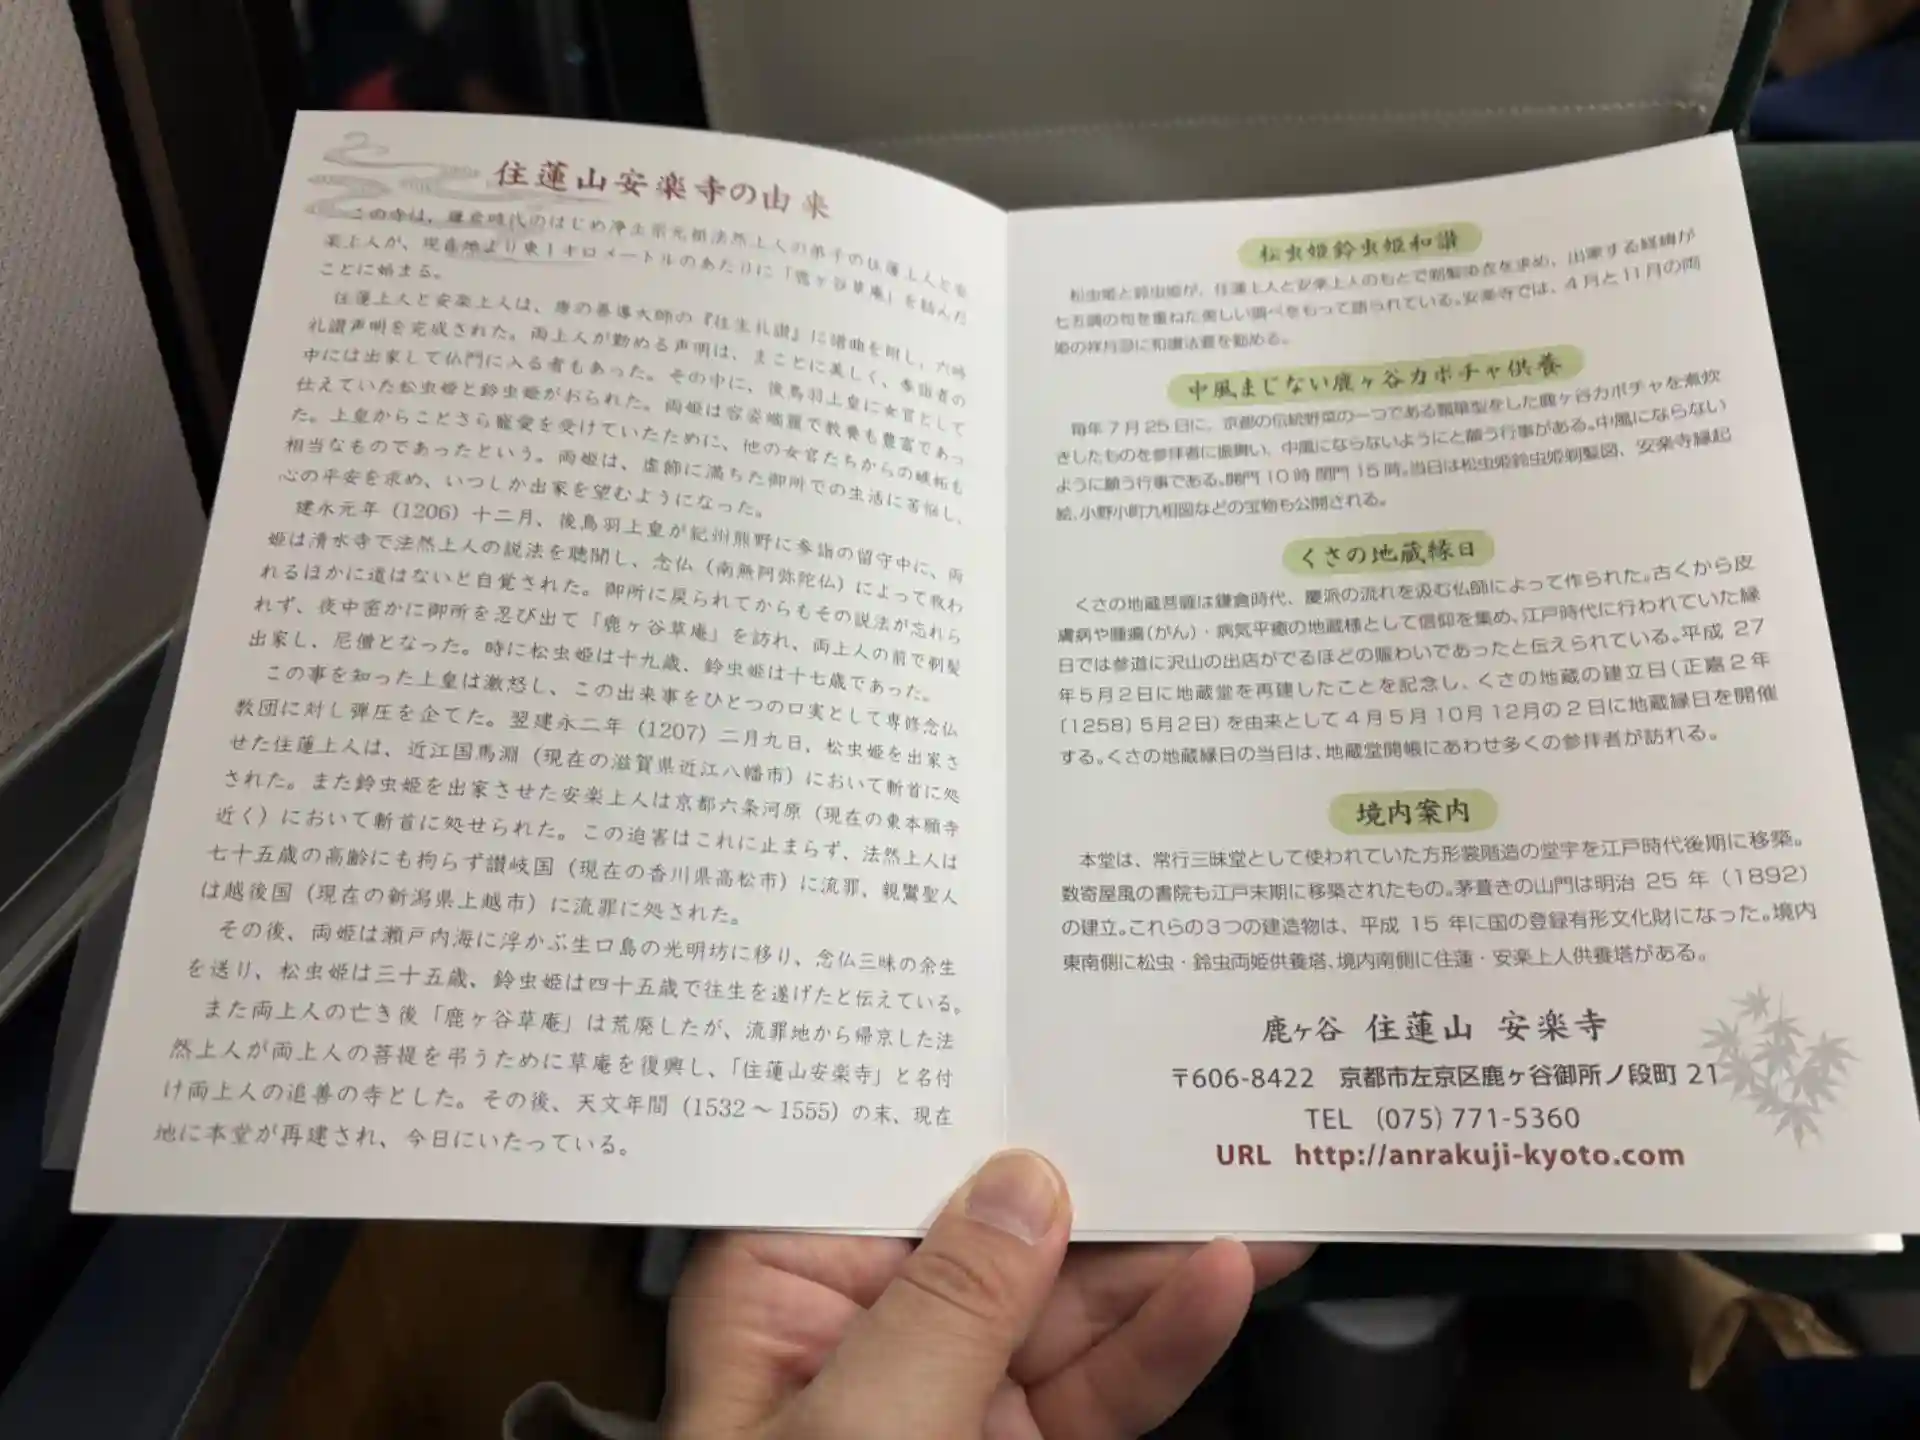 住蓮山安楽寺の由来
この寺は、鎌倉時代のはじめ浄土宗元祖法然上人の弟子の住蓮上人と安
楽上人が、現在地より東1キロメートルのあたりに「鹿ヶ谷草庵」を結んだ
ことに始まる。
住蓮上人と安楽上人は、唐の善導大師の『往生礼讃』に譜曲を附し、六時
礼讃声明を完成された。両上人が勤める声明は、まことに美しく、参詣者の
中には出家して仏門に入る者もあった。その中に、後鳥羽上皇に女官として
仕えていた松虫姫と鈴虫姫がおられた。両姫は容姿端麗で教養も豊富であっ
た。上皇からことさら寵愛を受けていたために、他の女官たちからの嫉妬も
相当なものであったという。両姫は、虚飾に満ちた御所での生活に苦悩し、
心の平安を求め、いつしか出家を望むようになった。
建永元年（1206）十二月、後鳥羽上皇が紀州熊野に参詣の留守中に、両
姫は清水寺で法然上人の説法を聴聞し、念仏（南無阿弥陀仏）によって救わ
れるほかに道はないと自覚された。御所に戻られてからもその説法が忘れら
れず、夜中密かに御所を忍び出て「鹿ヶ谷草庵」を訪れ、両上人の前で剃髪
出家し、尼僧となった。時に松虫姫は十九歳、鈴虫姫は十七歳であった。
この事を知った上皇は激怒し、この出来事をひとつの口実として専修念仏
教団に対し弾圧を企てた。翌建永二年（1207）二月九日、松虫姫を出家さ
せた住蓮上人は、近江国馬淵（現在の滋賀県近江八幡市）において斬首に処
された。また鈴虫姫を出家させた安楽上人は京都六条河原（現在の東本願寺
近く）において斬首に処せられた。この迫害はこれに止まらず、法然上人は
七十五歳の高齢にも拘らず讃岐国（現在の香川県高松市）に流罪、親鸞聖人
は越後国（現在の新潟県上越市）に流罪に処された。
その後、両姫は瀬戸内海に浮かぶ生口島の光明坊に移り、念仏三昧の余生
を送り、松虫姫は三十五歳、鈴虫姫は四十五歳で往生を遂げたと伝えている。
また両上人の亡き後「鹿ヶ谷草庵」は荒廃したが、流罪地から帰京した法
然上人が両上人の菩提を弔うために草庵を復興し、「住蓮山安楽寺」と名付
け両上人の追善の寺とした。その後、天文年間（1532～1555）の末、現在
地に本堂が再建され、今日にいたっている。
松虫姫鈴虫姫和讃
松虫姫と鈴虫姫が、住蓮上人と安楽上人のもとで剃髪染衣を求め、出家する経緯が
七五調の句を重ねた美しい調べをもって語られている。安楽寺では、4月と11月の両
姫の祥月忌に和讃法要を勤める。
中風まじない鹿ヶ谷カボチャ供養
毎年7月25日に、京都の伝統野菜の一つである瓢箪型をした鹿ヶ谷カボチャを煮炊
きしたものを参拝者に振舞い、中風にならないようにと願う行事がある。中風にならない
ように願う行事である。開門10時閉門15時。当日は松虫姫鈴虫姫剃髪図、安楽寺縁起
絵、小野小町九相図などの宝物も公開される。
くさの地蔵縁日
くさの地蔵菩薩は鎌倉時代、慶派の流れを汲む仏師によって作られた。古くから皮
膚病や腫瘍（がん）・病気平癒の地蔵様として信仰を集め、江戸時代に行われていた縁
日では参道に沢山の出店がでるほどの賑わいであったと伝えられている。平成27
年5月2日に地蔵堂を再建したことを記念し、くさの地蔵の建立日（正嘉2年
（1258）5月2日）を由来として4月5月10月12月の2日に地蔵縁日を開催
する。くさの地蔵縁日の当日は、地蔵堂開帳にあわせ多くの参拝者が訪れる。
境内案内
本堂は、常行三昧堂として使われていた方形裳階造の堂宇を江戸時代後期に移築。
数寄屋風の書院も江戸末期に移築されたもの。茅葺きの山門は明治25年（1892）
の建立。これらの3つの建造物は、平成15年に国の登録有形文化財になった。境内
東南側に松虫・鈴虫両姫供養塔、境内南側に住蓮・安楽上人供養塔がある。
鹿ヶ谷 住蓮山 安楽寺
〒606-8422 京都市左京区鹿ヶ谷御所ノ段町 21
TEL (075) 771-5360
URL http://anrakuji-kyoto.com